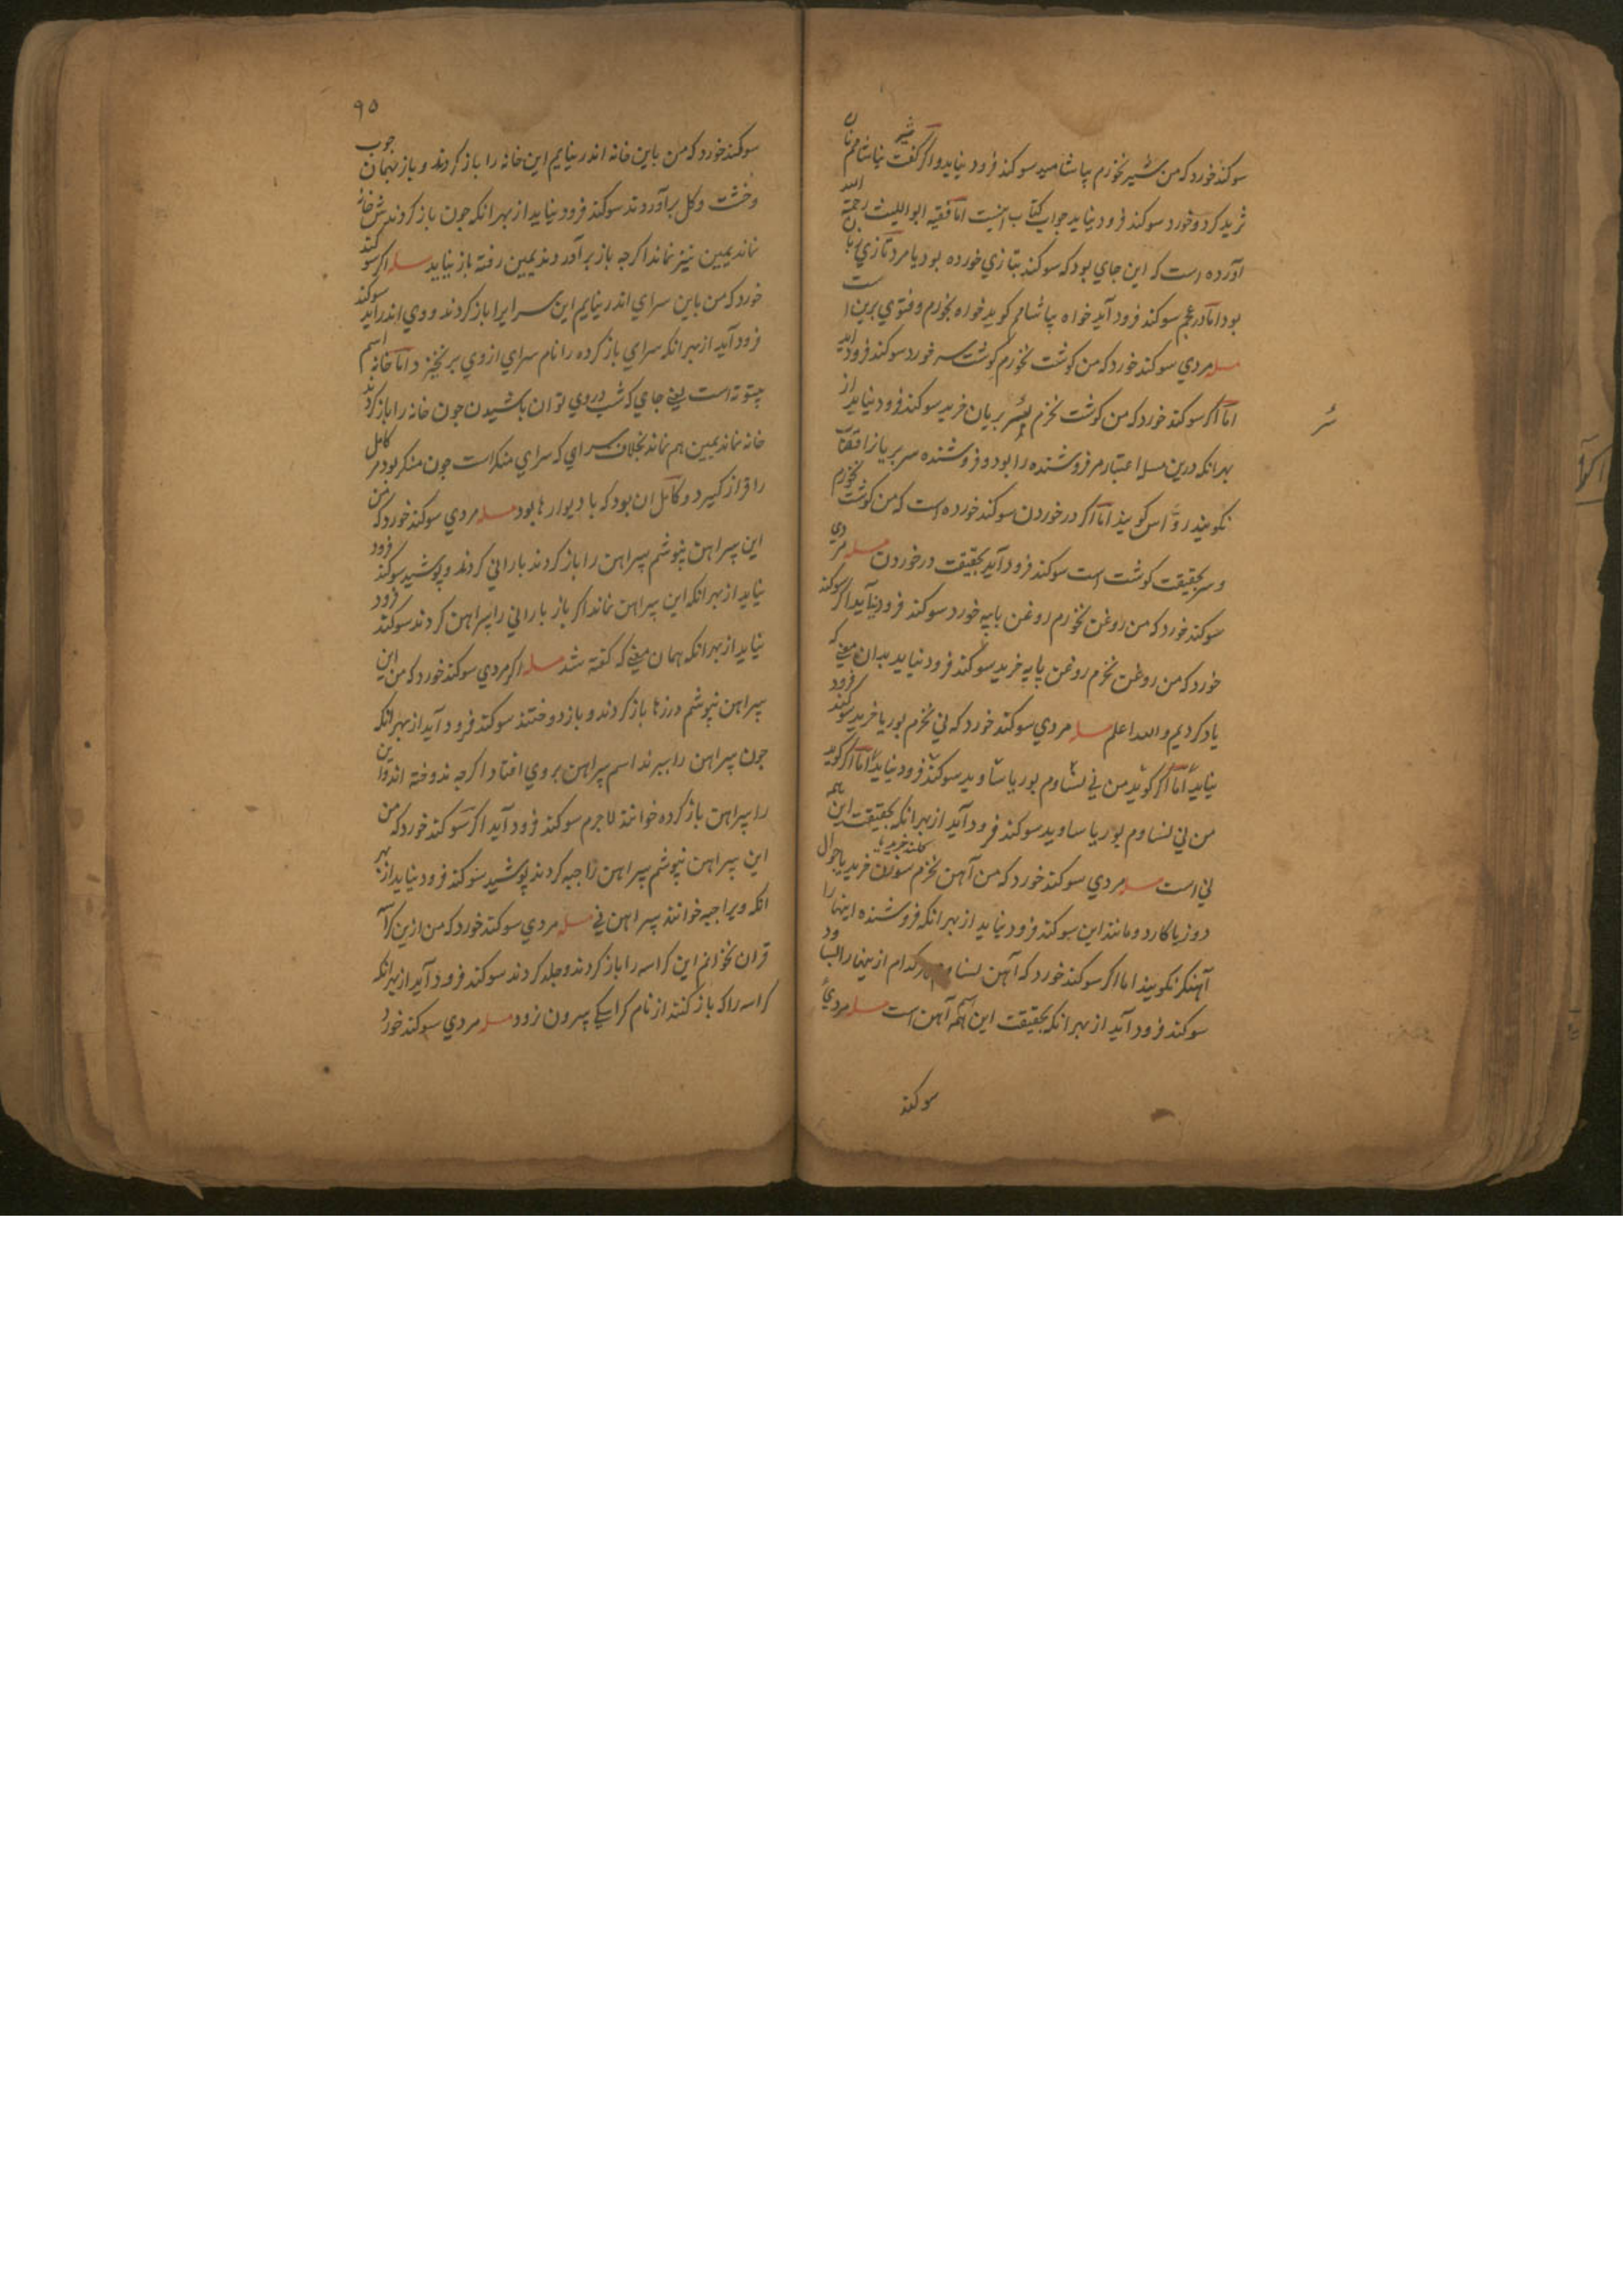 سوکند خورد که من شیر نخورم بیاشامید سوکند فرود نیاید و اکر کفت شیر نیاشامم نان
ثرید کرد و خورد سوکند فرود نیاید جواب کتاب اینست اما فقیه ابواللیث رحمة الله
آورده است که این جای بود که سوکند بتازی خورده بود یا مرد تازی زبان
بود اما در عجم سوکند فرود آید خواه بیاشامم کوید خواه بخورم و فتوی برین است
مسله مردی سوکند خورد که من کوشت نخورم کوشت سر خورد سوکند فرود آید
اما اکر سوکند خورد که من کوشت نخرم سر بریان خرید سوکند فرود نیاید از
بهر انکه درین مسله اعتبار مر فروشنده را بود و فروشنده سر بریان را قصاب
نکویند رواس کویند اما اکر در خوردن سوکند خورده است که من کوشت نخورم
و سر بحقیقت کوشت است سوکند فرود آید بحقیقت در خوردن مسله مردی
سوکند خورد که من روغن نخورم روغن پایه خورد سوکند فرود نیاید اکر سوکند
خورد که من روغن نخرم روغن پایه خرید سوکند فرود نیاید بدان معنی که
یاد کردیم والله اعلم مسله مردی سوکند خورد که نی نخرم بوریا خرید سوکند فرود
نیاید اما اکر کوید من نی نساوم بوریا ساوید سوکند فرود نیاید اما اکر کوید
من نی نساوم بوریا ساوید سوکند فرود آید از بهر انکه بحقیقت این همه
نی است مسله مردی سوکند خورد که من آهن نخرم سوزن خرید یا جوال
دوز یا کارد و مانند این سوکند فرود نیاید از بهر انکه فروشنده اینها را
آهنکر نکویند اما اکر سوکند خورد که آهن نساوم هر کدام از ینها را بساود
سوکند فرود آید از بهر انکه بحقیقت این همه آهن است مسله مردی
سوکند
۹۵
سوکند خورد که من باین خانه اندر نیایم این خانه را باز کردند و باز بهمان جوب
وخشت و کل برآوردند سوکند فرود نیاید از بهر انکه جون باز کردندش خانه
نماند یمین نیز نماند اکرجه باز برآوردند یمین رفته باز نیاید مسله اکر سوکند
خورد که من باین سرای اندر نیایم این سرایرا باز کردند و وی اندر آید سوکند
فرود آید از بهر انکه سرای باز کرده را نام سرای از وی برنخیزد اما خانه اسم
بیتوته است یعنی جای که شب در وی توان باشیدن جون خانه را باز کردند
خانه نماند یمین هم نماند بخلاف سرای که سرای منکر است جون منکر بود مر کامل
را فراز کیرد و کامل ان بود که با دیوارها بود مسله مردی سوکند خورد که من
این پیراهن نپوشم پیراهن را باز کردند بارانی کردند و پوشید سوکند فرود
نیاید از بهر انکه این پیراهن نماند اکر باز بارانی را پیراهن کردند سوکند فرود
نیاید از بهر انکه همان معنی که کفته شد مسله اکر مردی سوکند خورد که من این
پیراهن نپوشم درزها باز کردند و باز دوختند سوکند فرود آید از بهر انکه
جون پیراهن را ببرند اسم پیراهن بر وی افتاد اکرجه ندوخته اند و این
را پیراهن باز کرده خوانند لاجرم سوکند فرود آید اکر سوکند خورد که من
این پیراهن نپوشم پیراهن را جبه کردند پوشید سوکند فرود نیاید از بهر
انکه ویرا جبه خوانند پیراهن نی مسله مردی سوکند خورد که من ازین کراسه
قران نخوانم این کراسه را باز کردند و جلد کردند سوکند فرود آید از بهر انکه
کراسه را که باز کنند از نام کراسکی بیرون نرود مسله مردی سوکند خورد